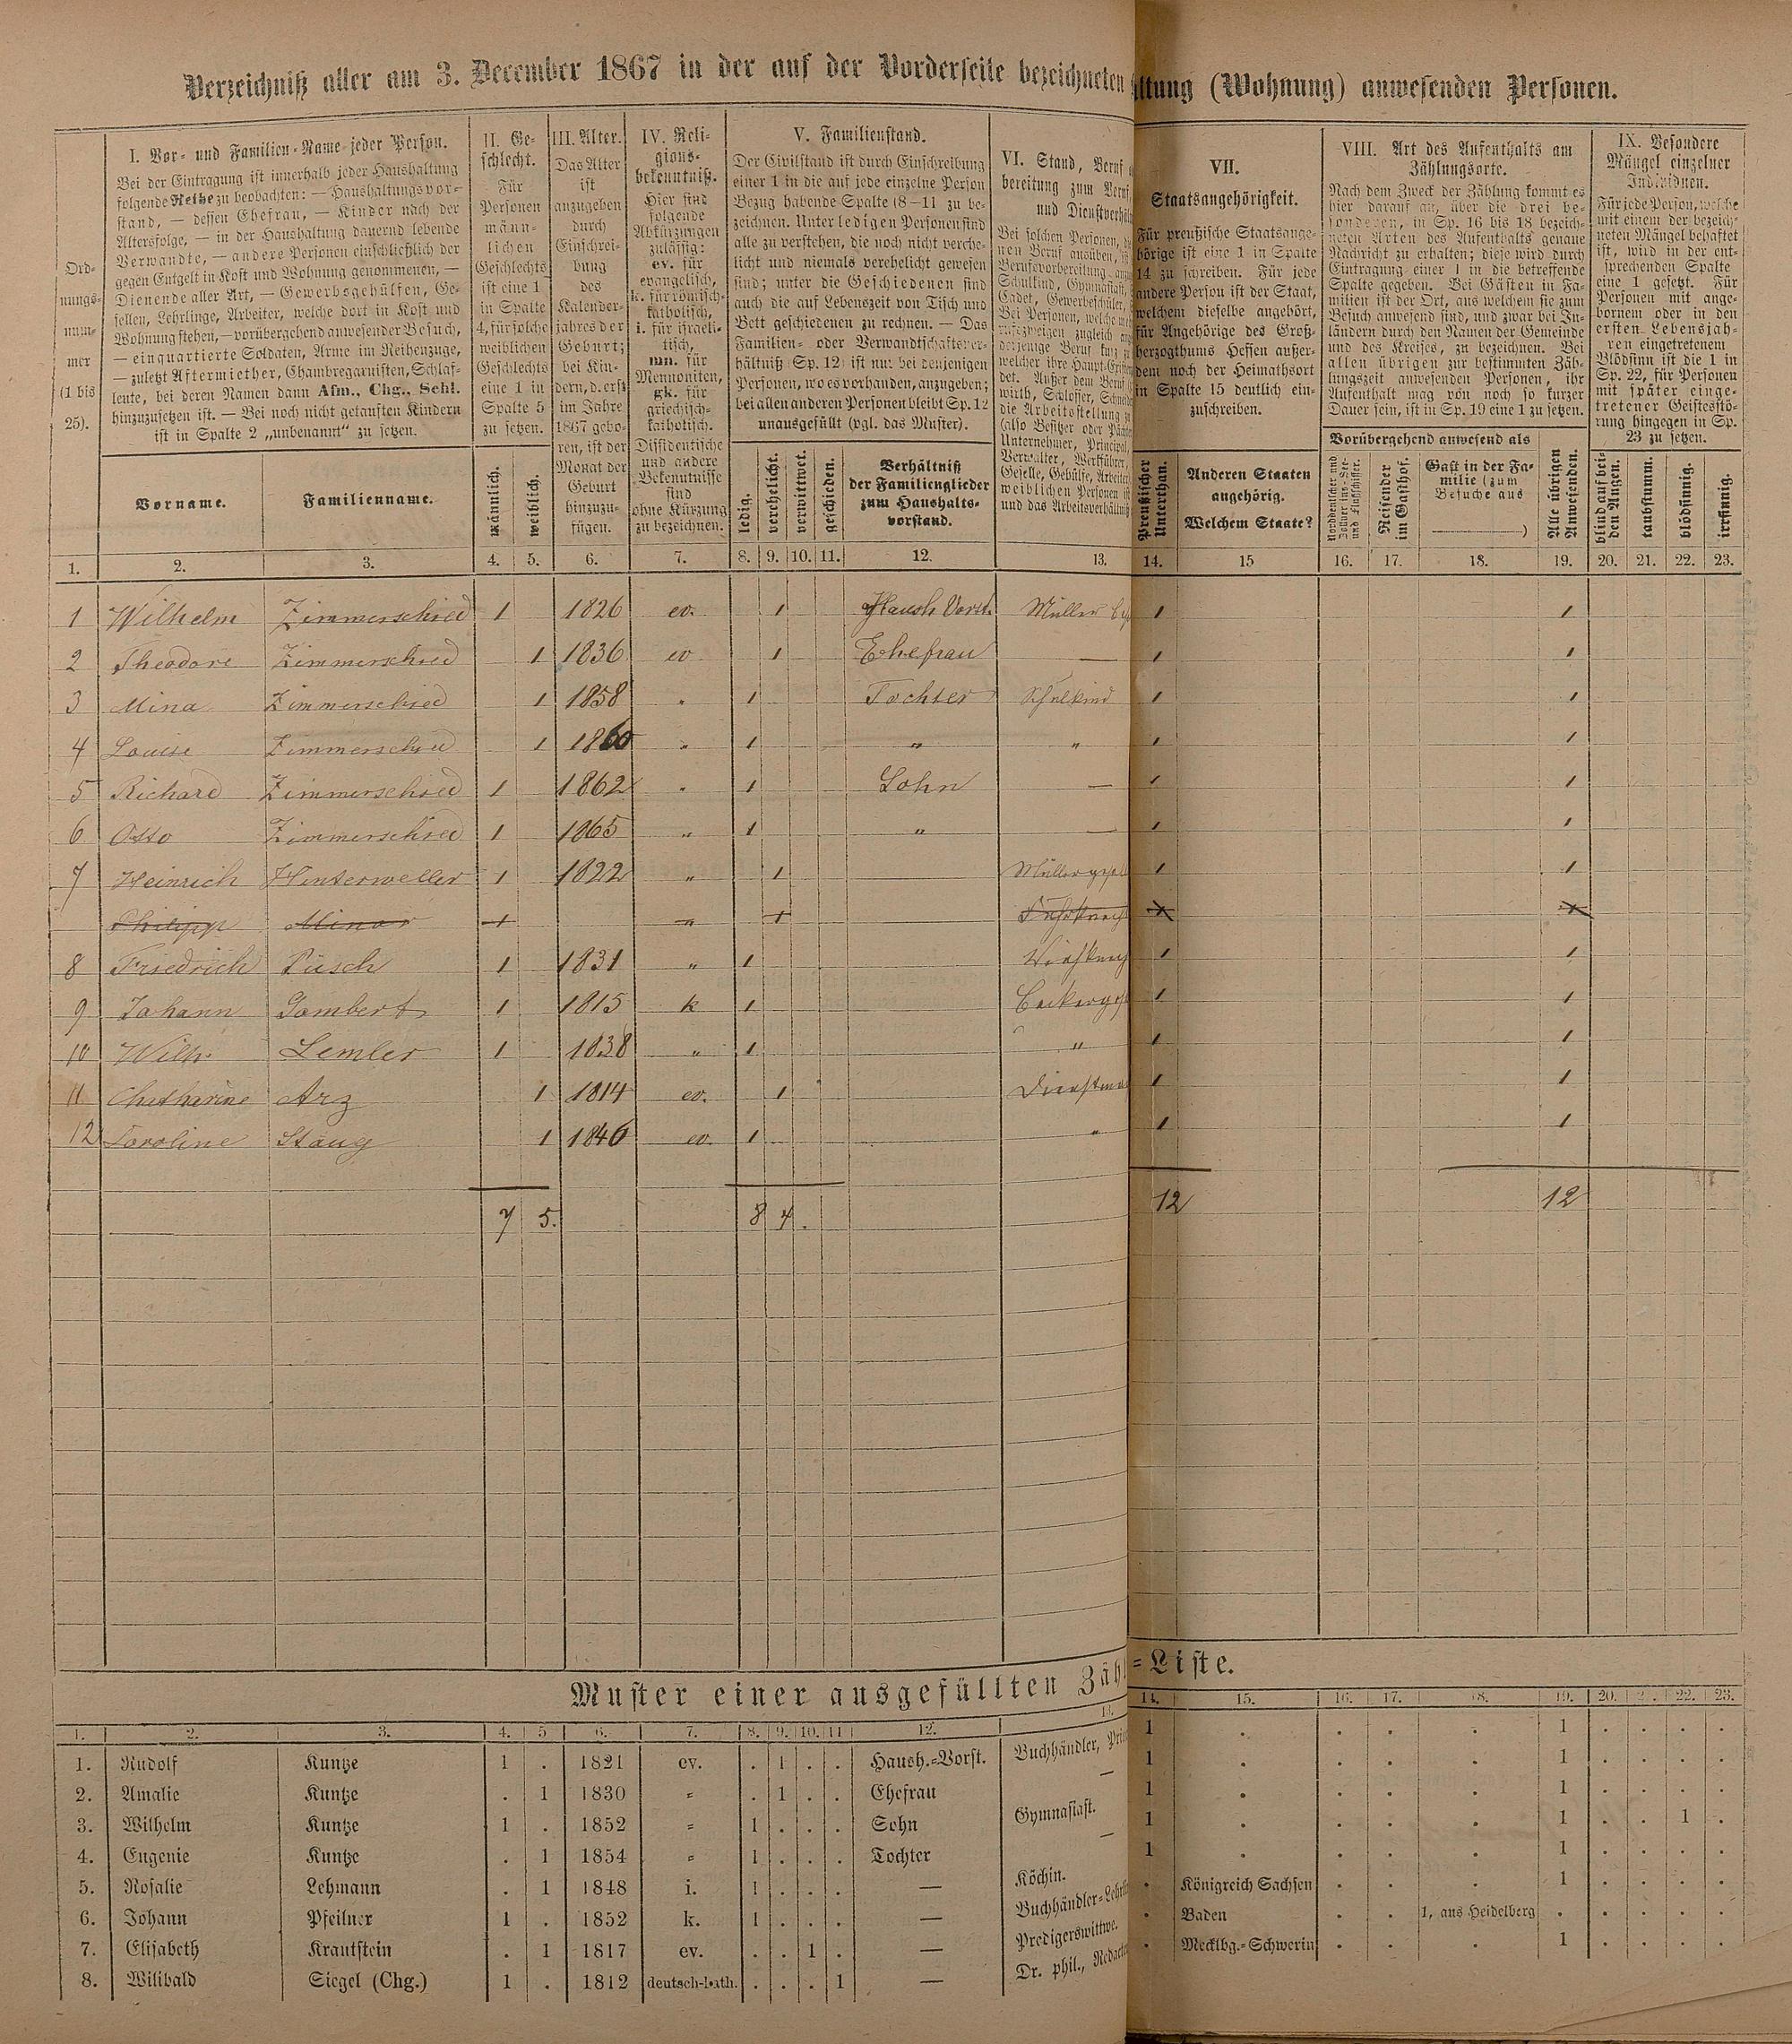 Verzeichniß aller am 3. December 1867 in der auf der Vorderseite bezeichneten
ltung (Wohnung) anwesenden Personen.
Ord-
nungs-
num-
mer
(1 bis
25).
I. Vor- und Familien-Name jeder Person.
Bei der Eintragung ist innerhalb jeder Haushaltung
folgende Reihe zu beobachten: — Haushaltungsvor-
stand, — dessen Ehefrau, — Kinder nach der
Altersfolge, — in der Haushaltung dauernd lebende
Verwandte, — andere Personen einschließlich der
gegen Entgelt in Kost und Wohnung genommenen, —
Dienende aller Art, — Gewerbsgehülfen, Ge-
sellen, Lehrlinge, Arbeiter, welche dort in Kost und
Wohnung stehen, — vorübergehend anwesender Besuch,
— einquartierte Soldaten, Arme im Reihenzuge,
— zuletzt Aftermiether, Chambregarnisten, Schlaf-
leute, bei deren Namen dann Afm., Chg., Schl.
hinzuzusetzen ist. — Bei noch nicht getauften Kindern
ist in Spalte 2 „unbenannt" zu setzen.
Vorname.
Familienname.
II. Ge-
schlecht.
Für
Personen
männ-
lichen
Geschlechts
ist eine 1
in Spalte
4, für solche
weiblichen
Geschlechts
eine 1 in
Spalte 5
zu setzen.
männlich.
weiblich.
III. Alter.
Das Alter
ist
anzugeben
durch
Einschrei-
bung
des
Kalender-
jahres der
Geburt;
bei Kin-
dern, d. erst
im Jahre
1867 gebo-
ren, ist der
Monat der
Geburt
hinzuzu-
fügen.
IV. Reli-
gions-
bekenntniß.
Hier sind
folgende
Abkürzungen
zulässig:
ev. für
evangelisch,
k. für römisch-
katholisch,
i. für israeli-
tisch,
mn. für
Mennoniten,
gk. für
griechisch-
katholisch.
Dissidentische
und andere
Bekenntnisse
sind
ohne Kürzung
zu bezeichnen.
V. Familienstand.
Der Civilstand ist durch Einschreibung
einer 1 in die auf jede einzelne Person
Bezug habende Spalte (8–11 zu be-
zeichnen. Unter ledigen Personen sind
alle zu verstehen, die noch nicht verehe-
licht und niemals verehelicht gewesen
sind; unter die Geschiedenen sind
auch die auf Lebenszeit von Tisch und
Bett geschiedenen zu rechnen. — Das
Familien- oder Verwandtschaftsver-
hältniß (Sp. 12) ist nur bei denjenigen
Personen, wo es vorhanden, anzugeben;
bei allen anderen Personen bleibt Sp. 12
unausgefüllt (vgl. das Muster).
ledig.
verehelicht.
verwittwet.
geschieden.
Verhältniß
der Familienglieder
zum Haushalts-
vorstand.
VI. Stand, Beruf
bereitung zum Beruf,
und Dienstverhält
Bei solchen Personen,
nen Beruf ausüben, ist
Berufsvorbereitung
Schulkind, Gymnasiast,
Cadet, Gewerbeschüler,
Bei Personen, welche
rufszweigen zugleich
derjenige Beruf kurz
welcher ihre Haupt-Existen
det. Außer dem Beruf
wirth, Schlosser, Schneider
die Arbeitsstellung
(also Besitzer oder Pächter
Unternehmer, Principal,
Verwalter, Werkführer,
Geselle, Gehülfe, Arbeiter
weiblichen Personen ist
und das Arbeitsverhältniß
VII.
Staatsangehörigkeit.
Für preußische Staatsange-
hörige ist eine 1 in Spalte
14 zu schreiben. Für jede
andere Person ist der Staat,
welchem dieselbe angehört,
für Angehörige des Groß-
herzogthums Hessen außer-
dem noch der Heimathsort
in Spalte 15 deutlich ein-
zuschreiben.
Preußischer
Unterthan.
Anderen Staaten
angehörig.
Welchem Staate?
VIII. Art des Aufenthalts am
Zählungsorte.
Nach dem Zweck der Zählung kommt es
hier darauf an, über die drei be-
sonderen, in Sp. 16 bis 18 bezeich-
neten Arten des Aufenthalts genaue
Nachricht zu erhalten; diese wird durch
Eintragung einer 1 in die betreffende
Spalte gegeben. Bei Gästen in Fa-
milien ist der Ort, aus welchem sie zum
Besuch anwesend sind, und zwar bei In-
ländern durch den Namen der Gemeinde
und des Kreises, zu bezeichnen. Bei
allen übrigen zur bestimmten Zäh-
lungszeit anwesenden Personen, ihr
Aufenthalt mag von noch so kurzer
Dauer sein, ist in Sp. 19 eine 1 zu setzen.
Vorübergehend anwesend als
Norddeutscher und
Zollver.ins-See-
und Flußschiffer.
Reisender
im Gasthof.
Gast in der Fa-
milie (zum
Besuche aus
)
Alle übrigen
Anwesenden.
IX. Besondere
Mängel einzelner
Individuen.
Für jede Person, welche
mit einem der bezeich-
neten Mängel behaftet
ist, wird in der ent-
sprechenden Spalte
eine 1 gesetzt. Für
Personen mit ange-
bornem oder in den
ersten Lebensjah-
ren eingetretenem
Blödsinn ist die 1 in
Sp. 22, für Personen
mit später einge-
tretener Geistesstö-
rung hingegen in Sp.
23 zu setzen.
blind auf bei-
den Augen.
taubstumm.
blödsinnig.
irrsinnig.
1. 2. 3. 4. 5. 6. 7. 8. 9. 10. 11. 12. 13. 14. 15 16. 17. 18. 19. 20. 21. 22. 23.
1 Wilhelm Zimmerschied 1 1826 ev. 1 Haush Vorst. Müller 1 1
2 Theodore Zimmerschied 1 1836 ev 1 Ehefrau — 1 1
3 Mina Zimmerschied 1 1858 " 1 Tochter Schulkind 1 1
4 Louise Zimmerschied 1 1860 " 1 " " 1 1
5 Richard Zimmerschied 1 1862 " 1 Sohn — 1 1
6 Otto Zimmerschied 1 1865 " 1 " — 1 1
7 Heinrich Hinterweller 1 1822 " 1 Müllergesell 1 1
Philipp Minor 1 " 1 Fuhrknecht 1 1
8 Friedrich Püsch 1 1831 " 1 1 1
9 Johann Gombert 1 1815 k 1 Beckerges 1 1
10 Wilh. Lemler 1 1838 " 1 " 1 1
11 Chatharine Arz 1 1814 ev. 1 Dienstma 1 1
12 Caroline Stäug 1 1846 ev. 1 " 1 1
7 5. 8 4. 12 12
Muster einer ausgefüllten Zähl
=Liste.
1. 2. 3. 4. 5 6. 7. 8. 9. 10. 11 12. 13. 14. 15. 16. 17. 18. 19. 20. 21. 22. 23.
1. Rudolf Kuntze 1 . 1821 ev. . 1 . . Haush.=Vorst. Buchhändler, Prin 1 . . . . 1 . . . .
2. Amalie Kuntze . 1 1830 = . 1 . . Ehefrau — 1 . . . . 1 . . . .
3. Wilhelm Kuntze 1 . 1852 = 1 . . . Sohn Gymnasiast. 1 . . . . 1 . . . .
4. Eugenie Kuntze . 1 1854 = 1 . . . Tochter — 1 . . . . 1 . . 1 .
5. Rosalie Lehmann . 1 1848 i. 1 . . . — Köchin. 1 . . . . 1 . . . .
6. Johann Pfeilner 1 . 1852 k. 1 . . . — Buchhändler=Lehrli . Königreich Sachsen . . . 1 . . . .
7. Elisabeth Krautstein . 1 1817 ev. . . 1 . — Predigerswittwe. . Baden . . 1, aus Heidelberg . . . . .
8. Wilibald Siegel (Chg.) 1 . 1812 deutsch-kath. . . . 1 — Dr. phil., Redacte . Mecklbg.=Schwerin . . . 1 . . . .